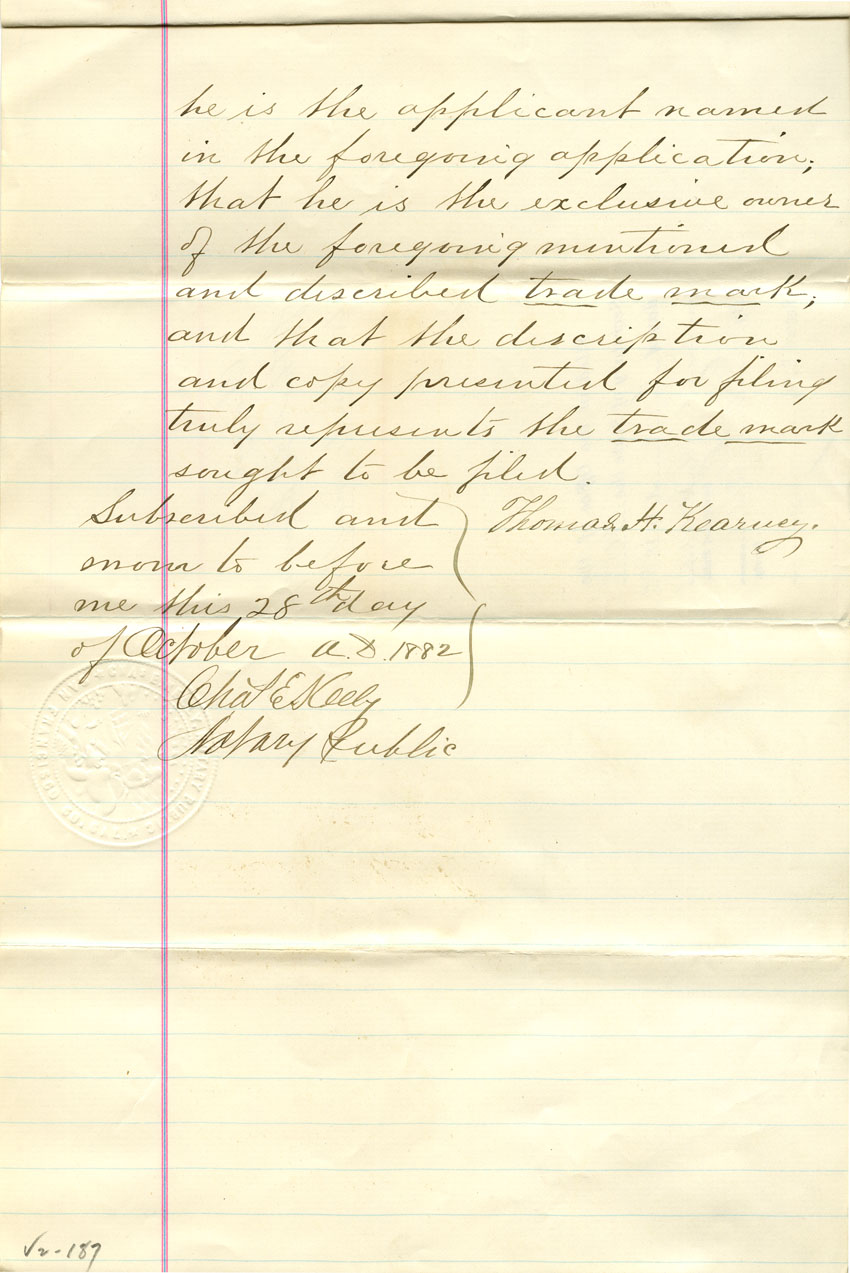 he is the applicant named
in the foregoing application;
that he is the exclusive owner
of the foregoing mentioned
and described trade mark;
and that the description
and copy presented for filing
truly represents the trade mark
sought to be filed.
Subscribed and
sworn to before
me this 28th day
of October A.D. 1882
Thomas H. Kearney.
Chas E Keely
Notary Public